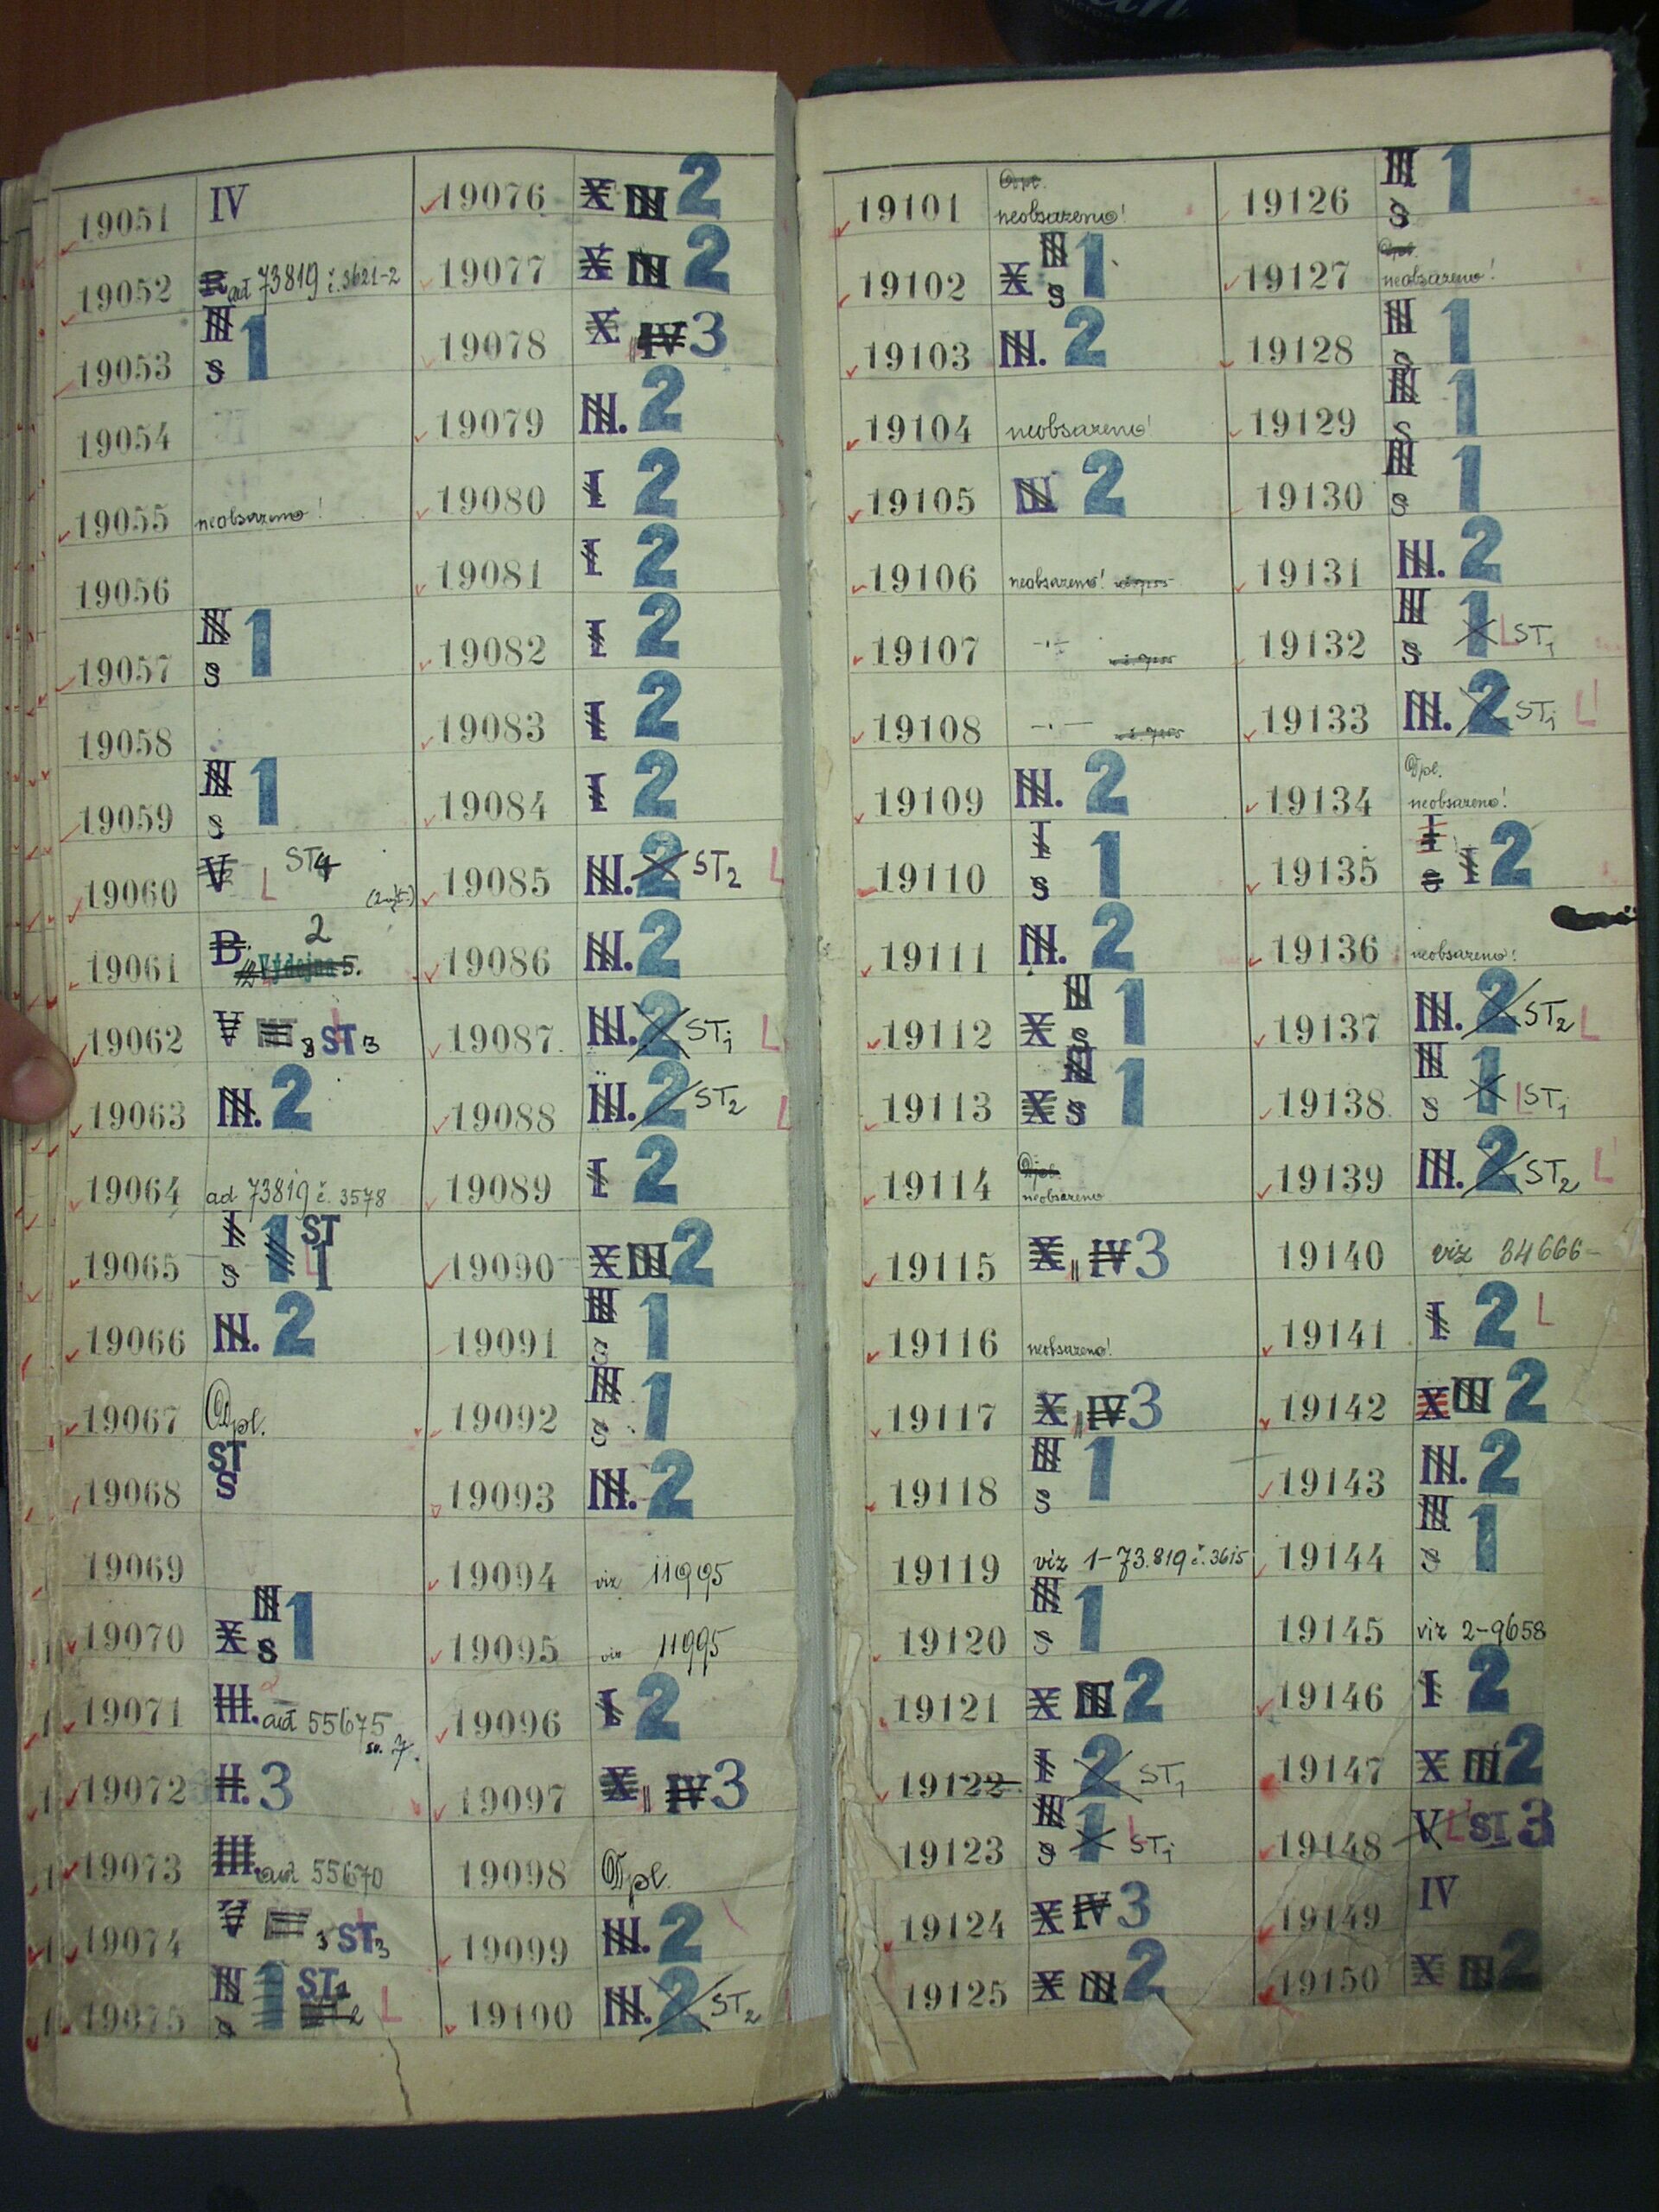 19051 IV
19052 ad 73819 č. 3621-2
19053 III S 1
19054
19055 neobsazeno!
19056
19057 III S 1
19058
19059 III S 1
19060 V L ST4
19061 B. 2 Výdejna 5.
19062 V 3 L ST3
19063 III. 2
19064 ad 73819 č. 3578
19065 I S 1 ST L I
19066 III. 2
19067 Dpl.
19068 ST S
19069
19070 X III S 1
19071 III. ad 55675 sv. 7.
19072 II. 3
19073 III. ad 55670
19074 V 3 L ST3
19075 III S 1 ST1 2 L
19076 X III 2
19077 X III 2
19078 X IV 3
19079 III. 2
19080 I 2
19081 I 2
19082 I 2
19083 I 2
19084 I 2
19085 III. 2 ST2 L
19086 III. 2
19087 III. 2 ST1 L
19088 III. 2 ST2 L
19089 I 2
19090 X III 2
19091 III S 1
19092 III S 1
19093 III. 2
19094 viz 11995
19095 viz 11995
19096 I 2
19097 X IV 3
19098 Dpl.
19099 III. 2
19100 III. 2 ST2
19101 Dpl. neobsazeno!
19102 X III S 1
19103 III. 2
19104 neobsazeno!
19105 III 2
19106 neobsazeno!
19107 -"-
19108 -"-
19109 III. 2
19110 I S 1
19111 III. 2
19112 X III S 1
19113 X III S 1
19114 Dpl. neobsazeno
19115 X IV 3
19116 neobsazeno!
19117 X IV 3
19118 III S 1
19119 viz 1-73.819 č. 3615
19120 III S 1
19121 X III 2
19122 I 2 ST1
19123 III S 1 L ST1
19124 X IV 3
19125 X III 2
19126 III S 1
19127 Dpl. neobsazeno!
19128 III S 1
19129 III S 1
19130 III S 1
19131 III. 2
19132 III S 1 L ST1
19133 III. 2 ST1 L
19134 Dpl. neobsazeno!
19135 I S I 2
19136 neobsazeno!
19137 III. 2 ST2 L
19138 III S 1 L ST1
19139 III. 2 ST2 L
19140 viz 34666-
19141 I 2 L
19142 X III 2
19143 III. 2
19144 III S 1
19145 viz 2-9658
19146 I 2
19147 X III 2
19148 V L ST 3
19149 IV
19150 X III 2